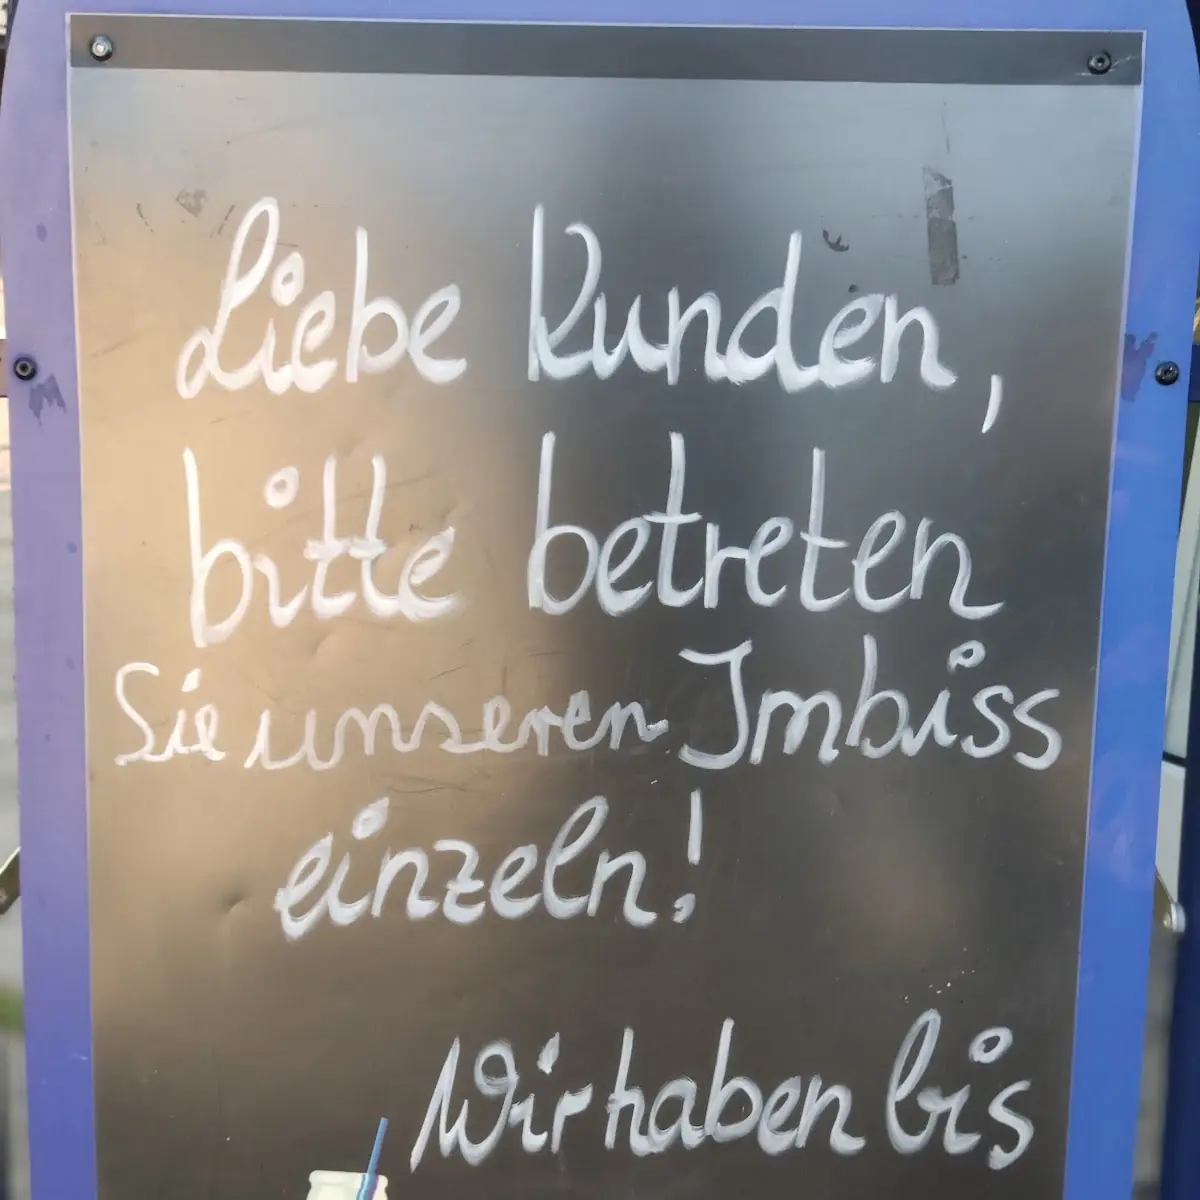 Liebe Kunden,
bitte betreten
Sie unseren Imbiss
einzeln!
Wir haben bis